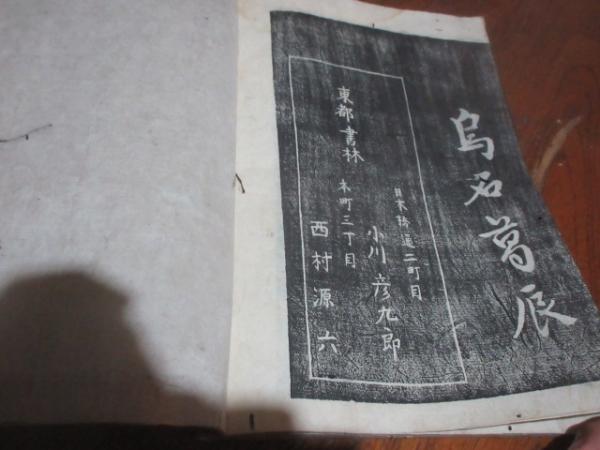 烏石葛辰
東都書林
日本橋通二町目
小川彦九郎
本町三丁目
西村源六